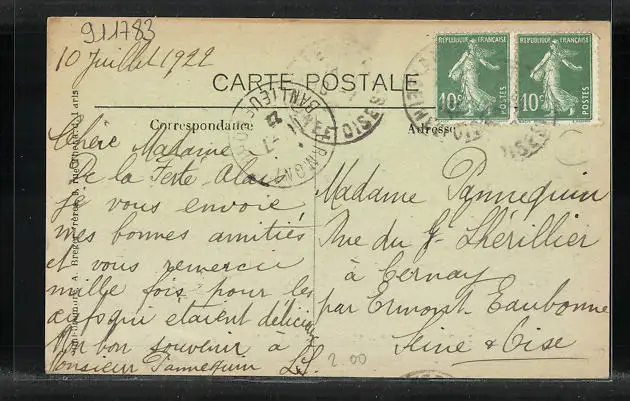 911783
10 Juillet 1922
CARTE POSTALE
REPUBLIQUE FRANÇAISE
10c
POSTES
REPUBLIQUE FRANÇAISE
10c
POSTES
Correspondance
Adresse
Chère Madame
De la Ferté Alais
je vous envoie
mes bonnes amitiés
et vous remercie
mille fois pour les
œufs qui étaient délicieux
Mon bon souvenir à
Monsieur Pannequin
Madame Pannequin
Rue du Gal Lhérillier
à Cernay
par Ermont-Eaubonne
Seine & Oise
2.00
A. Breger Frères, 9, rue
Paris
BANLIEUE